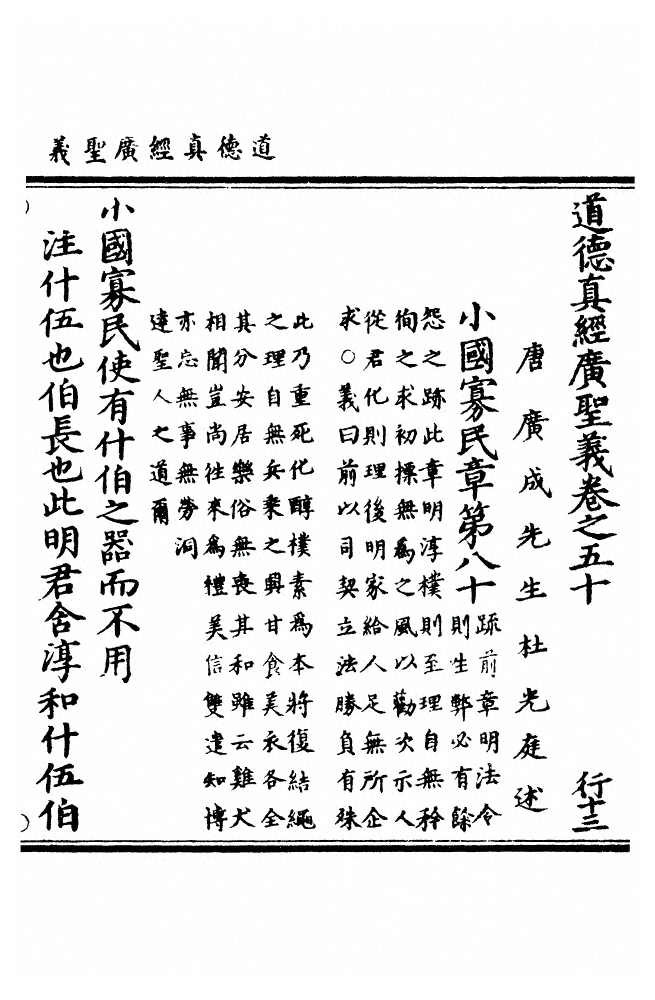 道德真經廣聖義
道德真經廣聖義卷之五十　行十三
唐廣成先生杜光庭述
小國寡民章第八十
疏前章明法令
則生弊必有餘
怨之跡此章明淳樸則至理自無矜
徇之求初標無為之風以勸次示人
從君化則理後明家給人足無所企
求○義曰前以司契立法勝負有殊
此乃重死化醇樸素為本將復結繩
之理自無兵衆之興甘食美衣各全
其分安居樂俗無喪其和雖云雞犬
相聞豈尚往來為禮美信雙遣知博
亦忘無事無勞洞
達聖人之道爾
小國寡民使有什伯之器而不用
注什伍也伯長也此明君含淳和什伍伯